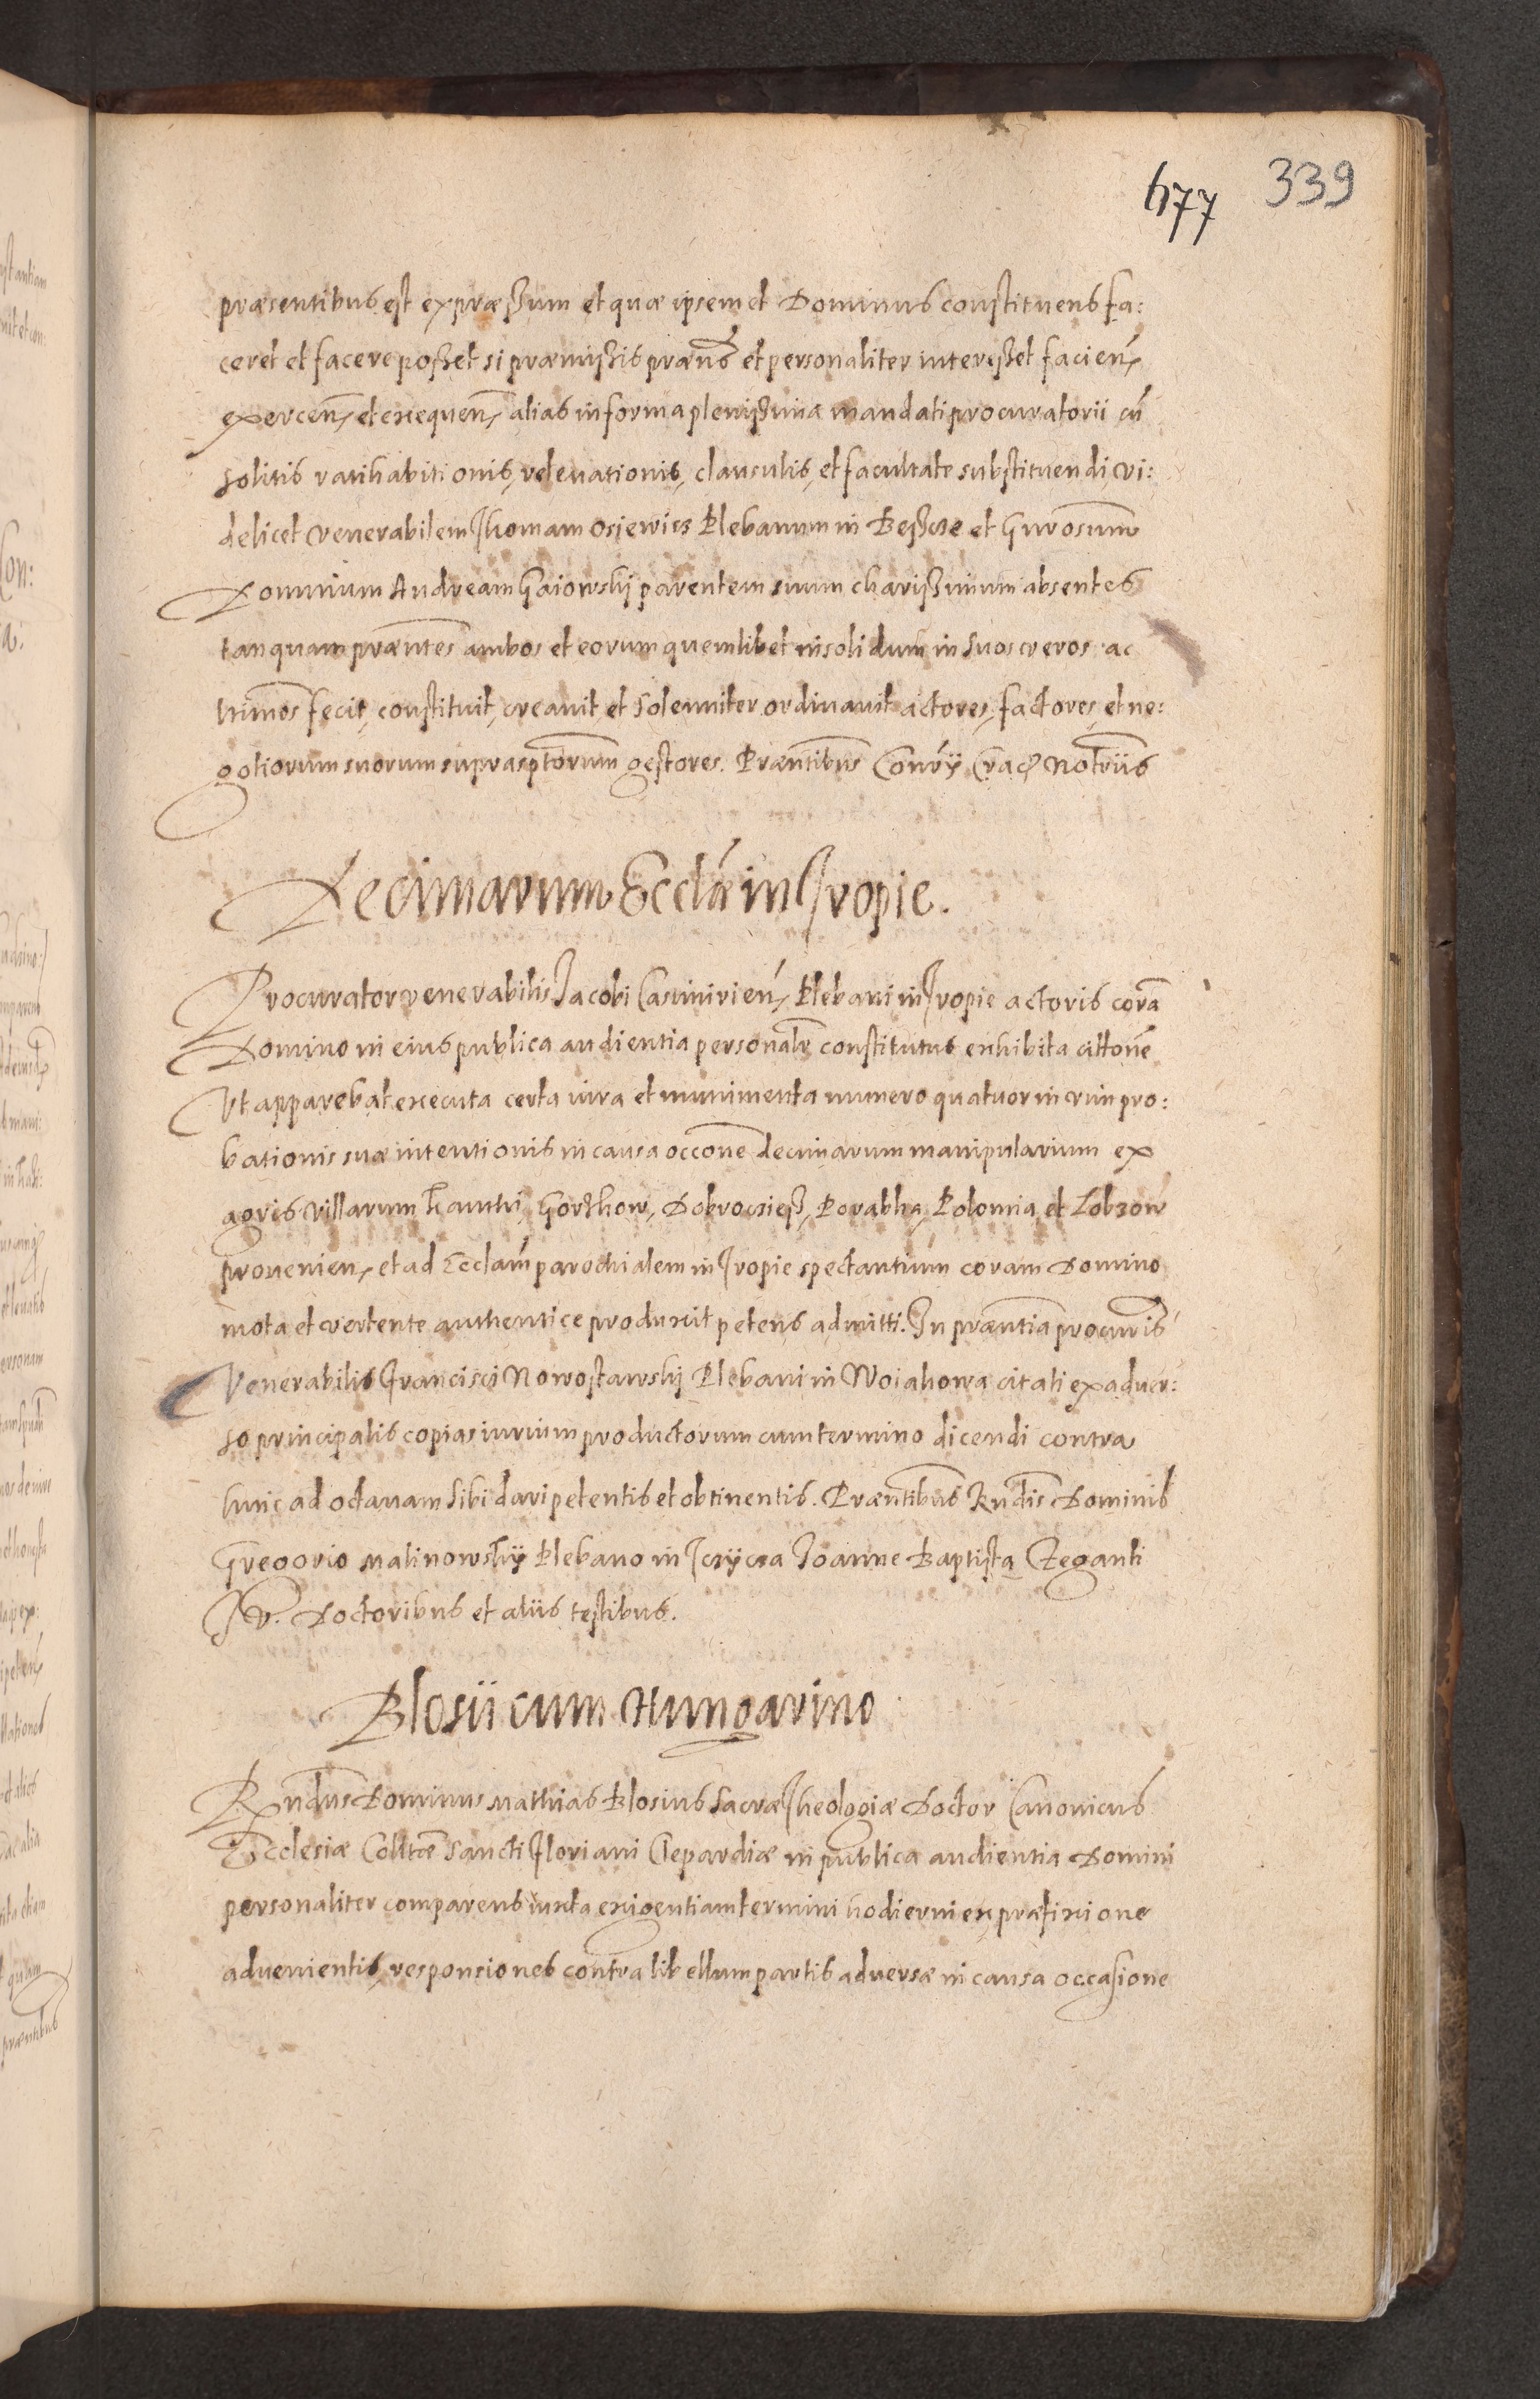 677 339
præsentibus est expræssum et quæ ipsemet Dominus constituens fa:
ceret et facere posset si præmissis præns et personaliter interesset facien
exercen et exequen alias in forma plenissima mandati procuratorii cũ
solitis ratihabitionis, relevationis, clausulis, et facultate substituendi vi:
delicet Venerabilem Thomam Osiewicz Plebanum in et Gnrosum
Dominum Andream Gaiowskij parentem suum charissimum absentes
tanquam præntes ambos et eorum quemlibet insolidum in suos veros ac
ltimos fecit, constituit, creavit, et solenniter ordinavit actores, factores, et ne:
gotiorum suorum suprasptorum gestores. Præntibus Conrÿ Notriis
Decimarum Ecclæ in Tropie.
Procurator venerabilis Jacobi Casimirien Plebani in Tropie actoris corã
Domino in eius publica audientia personalr constitutus exhibita cittone
Ut apparebat executa certa iura et munimenta numero quatuor in vim pro:
bationis suæ intentionis in causa occone decimarum manipularium ex
agris villarum Habalina, Gorzkow, Dobrocziess, Porabka, Polomia, et Lobzow
provenien, et ad Ecclam parochialem in Tropie spectantium coram Domino
mota et vertente authentice produxit petens admitti. In præntia procuris
Venerabilis Francisci Nowostawskij Plebani in Woiakowa citati ex adver:
so principalis copias iurium productorum cum termino dicendi contra
hinc ad octavam sibi dari petentis et obtinentis. Præntibus Rndis Dominis
Gregorio Malinowskÿ Plebano in Joanne Baptista Czeganti
J V. Doctoribus et aliis testibus.
Blosii cum Hungarino
Rndus Dominus Mathias Blosius Sacræ Theologiæ Doctor Canonicus
Ecclesiæ Colltæ Sancti Floriani Clepardiæ in publica audientia Domini
personaliter comparens iuxta exigentiam termini hodierni ex præfixione
advenientis, responsiones contra libellum partis adversæ in causa occasione